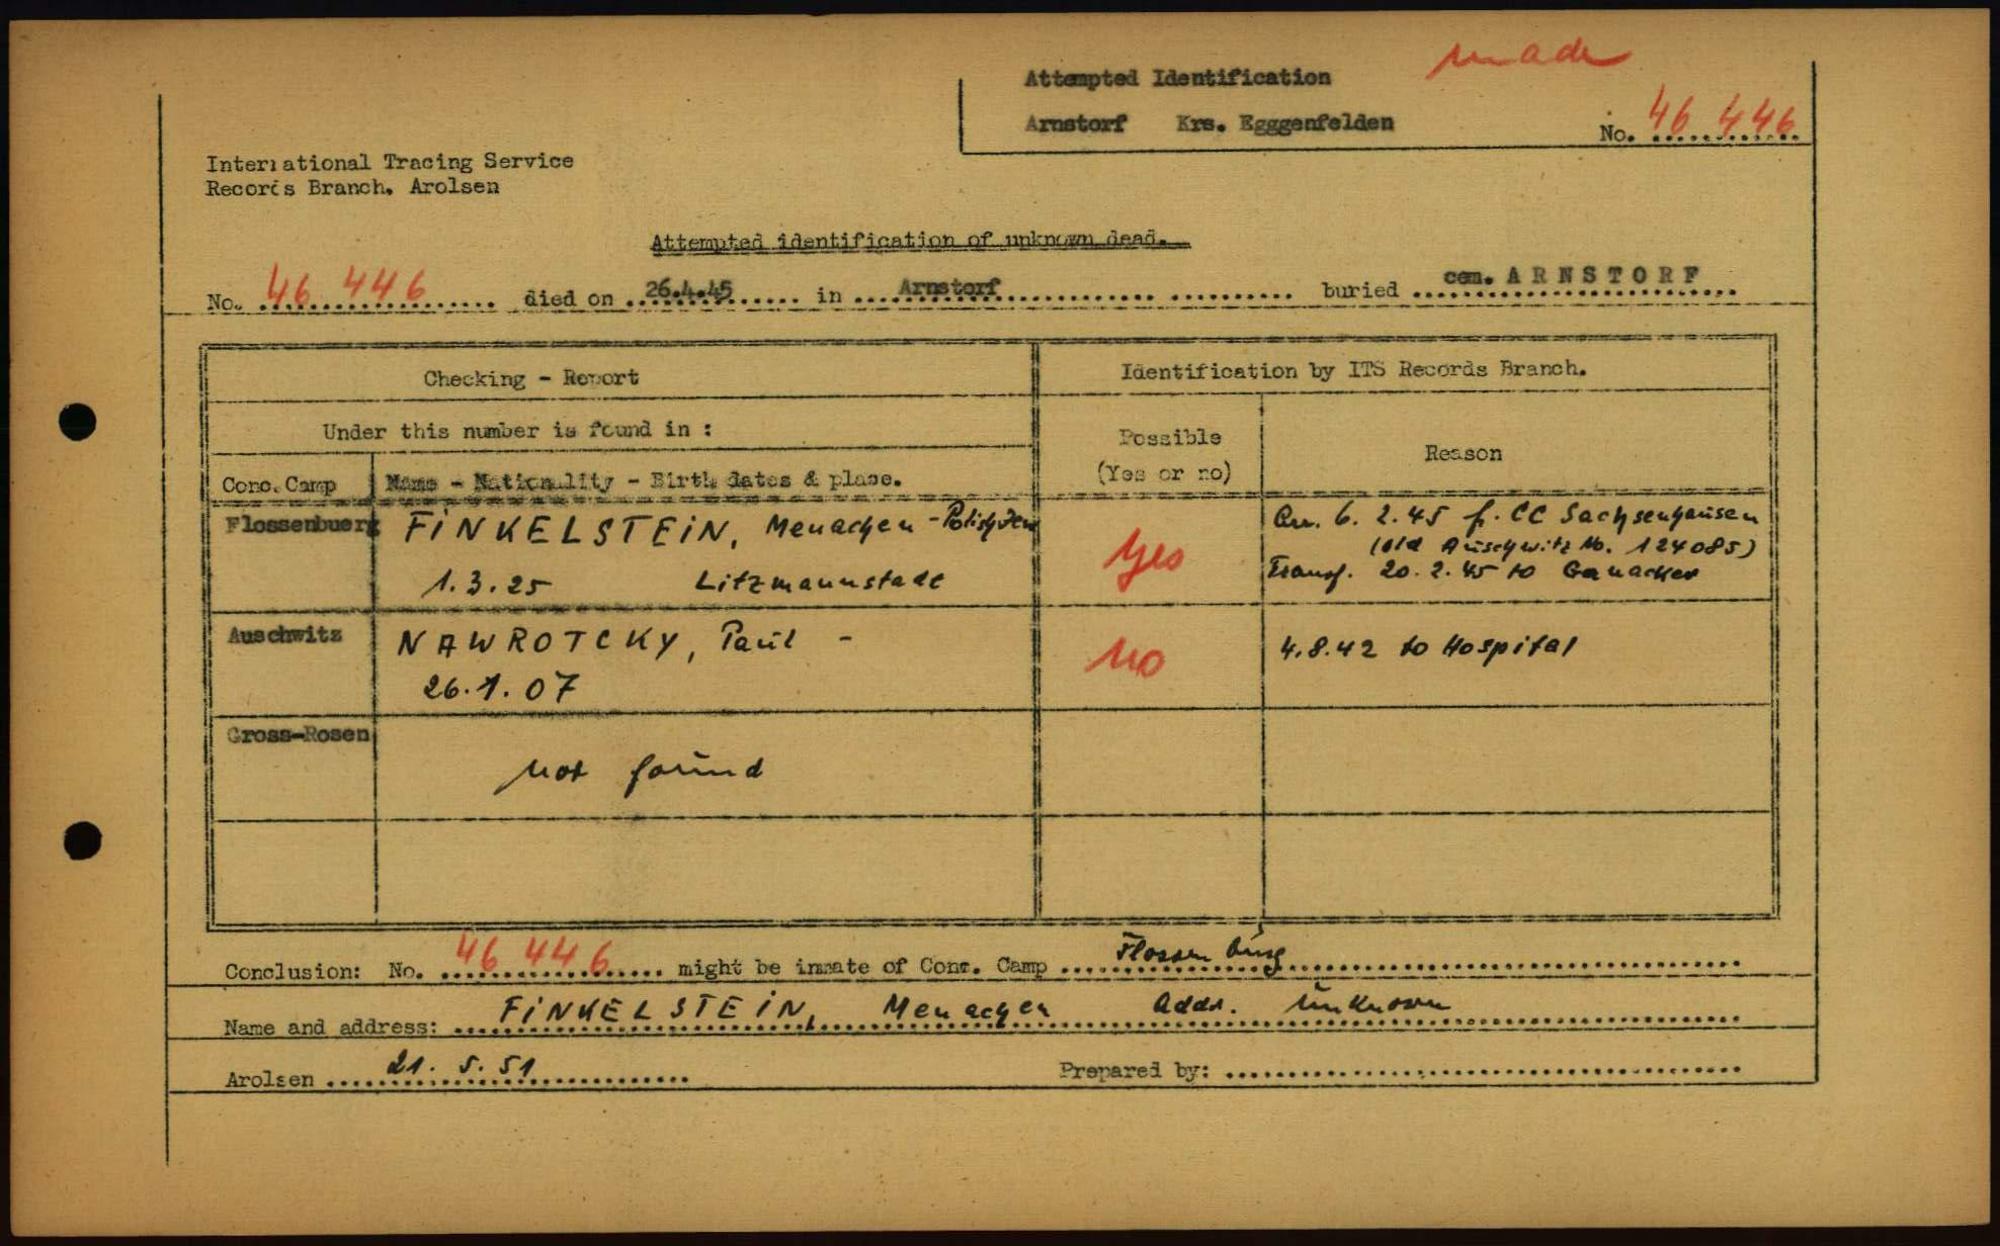 made
Attempted Identification
Arnstorf Krs. Egggenfelden
No. 46 446
International Tracing Service
Records Branch. Arolsen
Attempted identification of unknown dead.
No. 46 446 died on 26.4.45 in Arnstorf buried cem. ARNSTORF
Checking - Report
Identification by ITS Records Branch.
Under this number is found in :
Possible
(Yes or no)
Reason
Conc. Camp
Name - Nationality - Birth dates & place.
Flossenbuerg
FINKELSTEIN, Menachen - Polish Jew
1.3.25 Litzmannstadt
yes
Arr. 6. 2.45 f. CC Sachsenhausen
(old Auschwitz No. 124085)
Transf. 20. 2. 45 to Ganacker
Auschwitz
NAWROTCKY, Paul -
26.1.07
no
4.8.42 to Hospital
Gross-Rosen
not found
Conclusion: No. 46 446 might be inmate of Conc. Camp Flossenburg
Name and address: FINKELSTEIN, Menachen Addr. unknown
Arolsen 21. 5. 51
Prepared by: